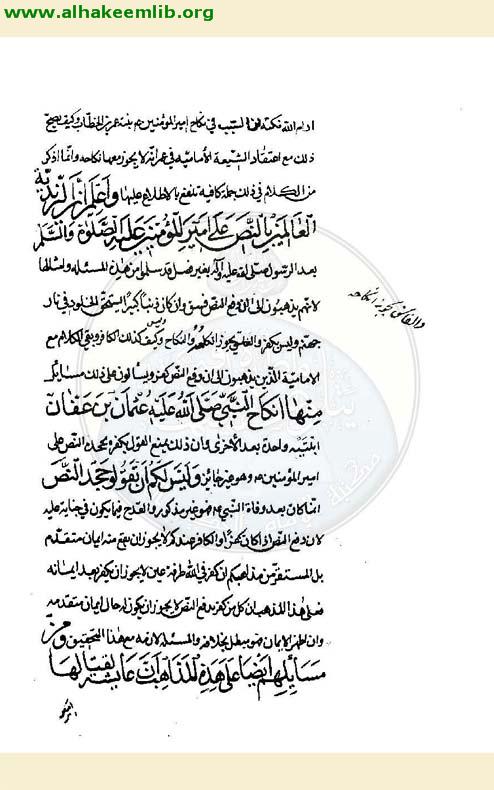 www.alhakeemlib.org
ادام الله نكته في السبب في نكاح امير المؤمنين ع بنت عمر بن الخطاب وكيف يصح
ذلك مع اعتقاد الشيعة الامامية في عمر انه لا يجوز معها نكاحه وانما اذكر
من الكلام في ذلك جملة كافية تنفع بالاطلاع عليها واعلم ان الزيدية
القائلين بالنص على امير المؤمنين عليه الصلوة والسلم
بعد الرسول صلى الله عليه وآله بغير فصل قد سلموا من هذه المسئلة وامثالها
لانهم يذهبون الى ان دفع النص فسق وان كان ذنبا كبيرا يستحق الخلود في نار
جهنم وليس بكفر والفاسق يجوز انكاحه والنكاح وليس كذلك الكافر وبقى الكلام مع
والفاسق يجوز انكاحه
الامامية الذين يذهبون الى ان دفع النص كفر ويسألون على ذلك مسايل
منها انكاح النبي صلى الله عليه عثمان بن عفان
ابنتيه واحدة بعد الاخرى وان ذلك يمنع القول بكفره بجحده النص على
امير المؤمنين ع وهو غير جائز وليس لكم ان تقولوا جحد النص
انما كان بعد وفاة النبي ع وهو غير مذكور والقدح فيما يكون في جنايه عليه
لان دفع النص اذا كان كفرا والكافر عندكم لا يجوز ان يقع منه ايمان متقدم
بل المستقر من مذاهبكم ان من كفر في الله طرفة عين لا يجوز ان يكفر بعد ايمانه
فعلى هذا المذهب ان كل من كفر بدفع النص لا يجوز ان يكون له حال ايمان متقدمة
وان اظهر الايمان فهو مبطل بخلافه والمسئلة لازمة مع هذا التحقيق ومن
مسايلهم ايضا على هذه المذاهب ان عايشة بقتالها